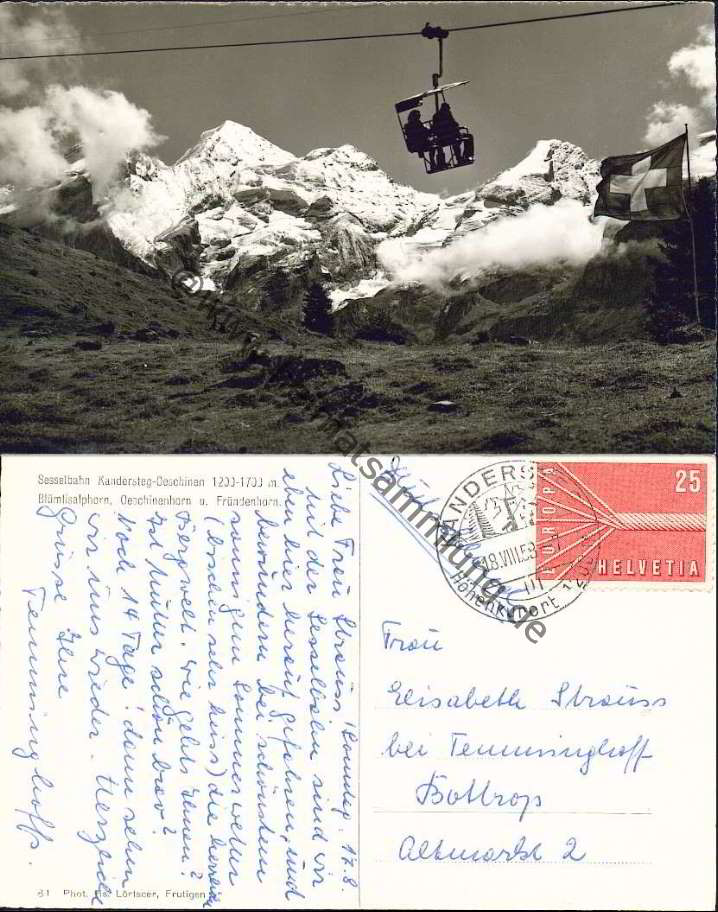 Sesselbahn Kandersteg-Oeschinen 1200-1700 m
Blümlisalphorn, Oeschinenhorn u. Fründenhorn.
Liebe Frau Strauss! Sonntag. 17.8.
mit der Sesselbahn sind wir
eben hier herauf gefahren, und
bewundern bei schönstem
sonnigen Sommerwetter
die
Bergwelt. Wie geht's Ihnen?
Ist Mutter schön brav?
Noch 14 Tage! dann sehn
wir uns wieder. Herzliche
Grüsse Ihre
Temminghoffs.
KANDERS
18.VIII.58
Höhenkurort
EUROPA
25
HELVETIA
Frau
Elisabeth Strauss
bei Temminghoff
Bottrop
Altmarkt 2
61 Phot. Hs. Lörtscher, Frutigen
ansichtskartensammlung.de